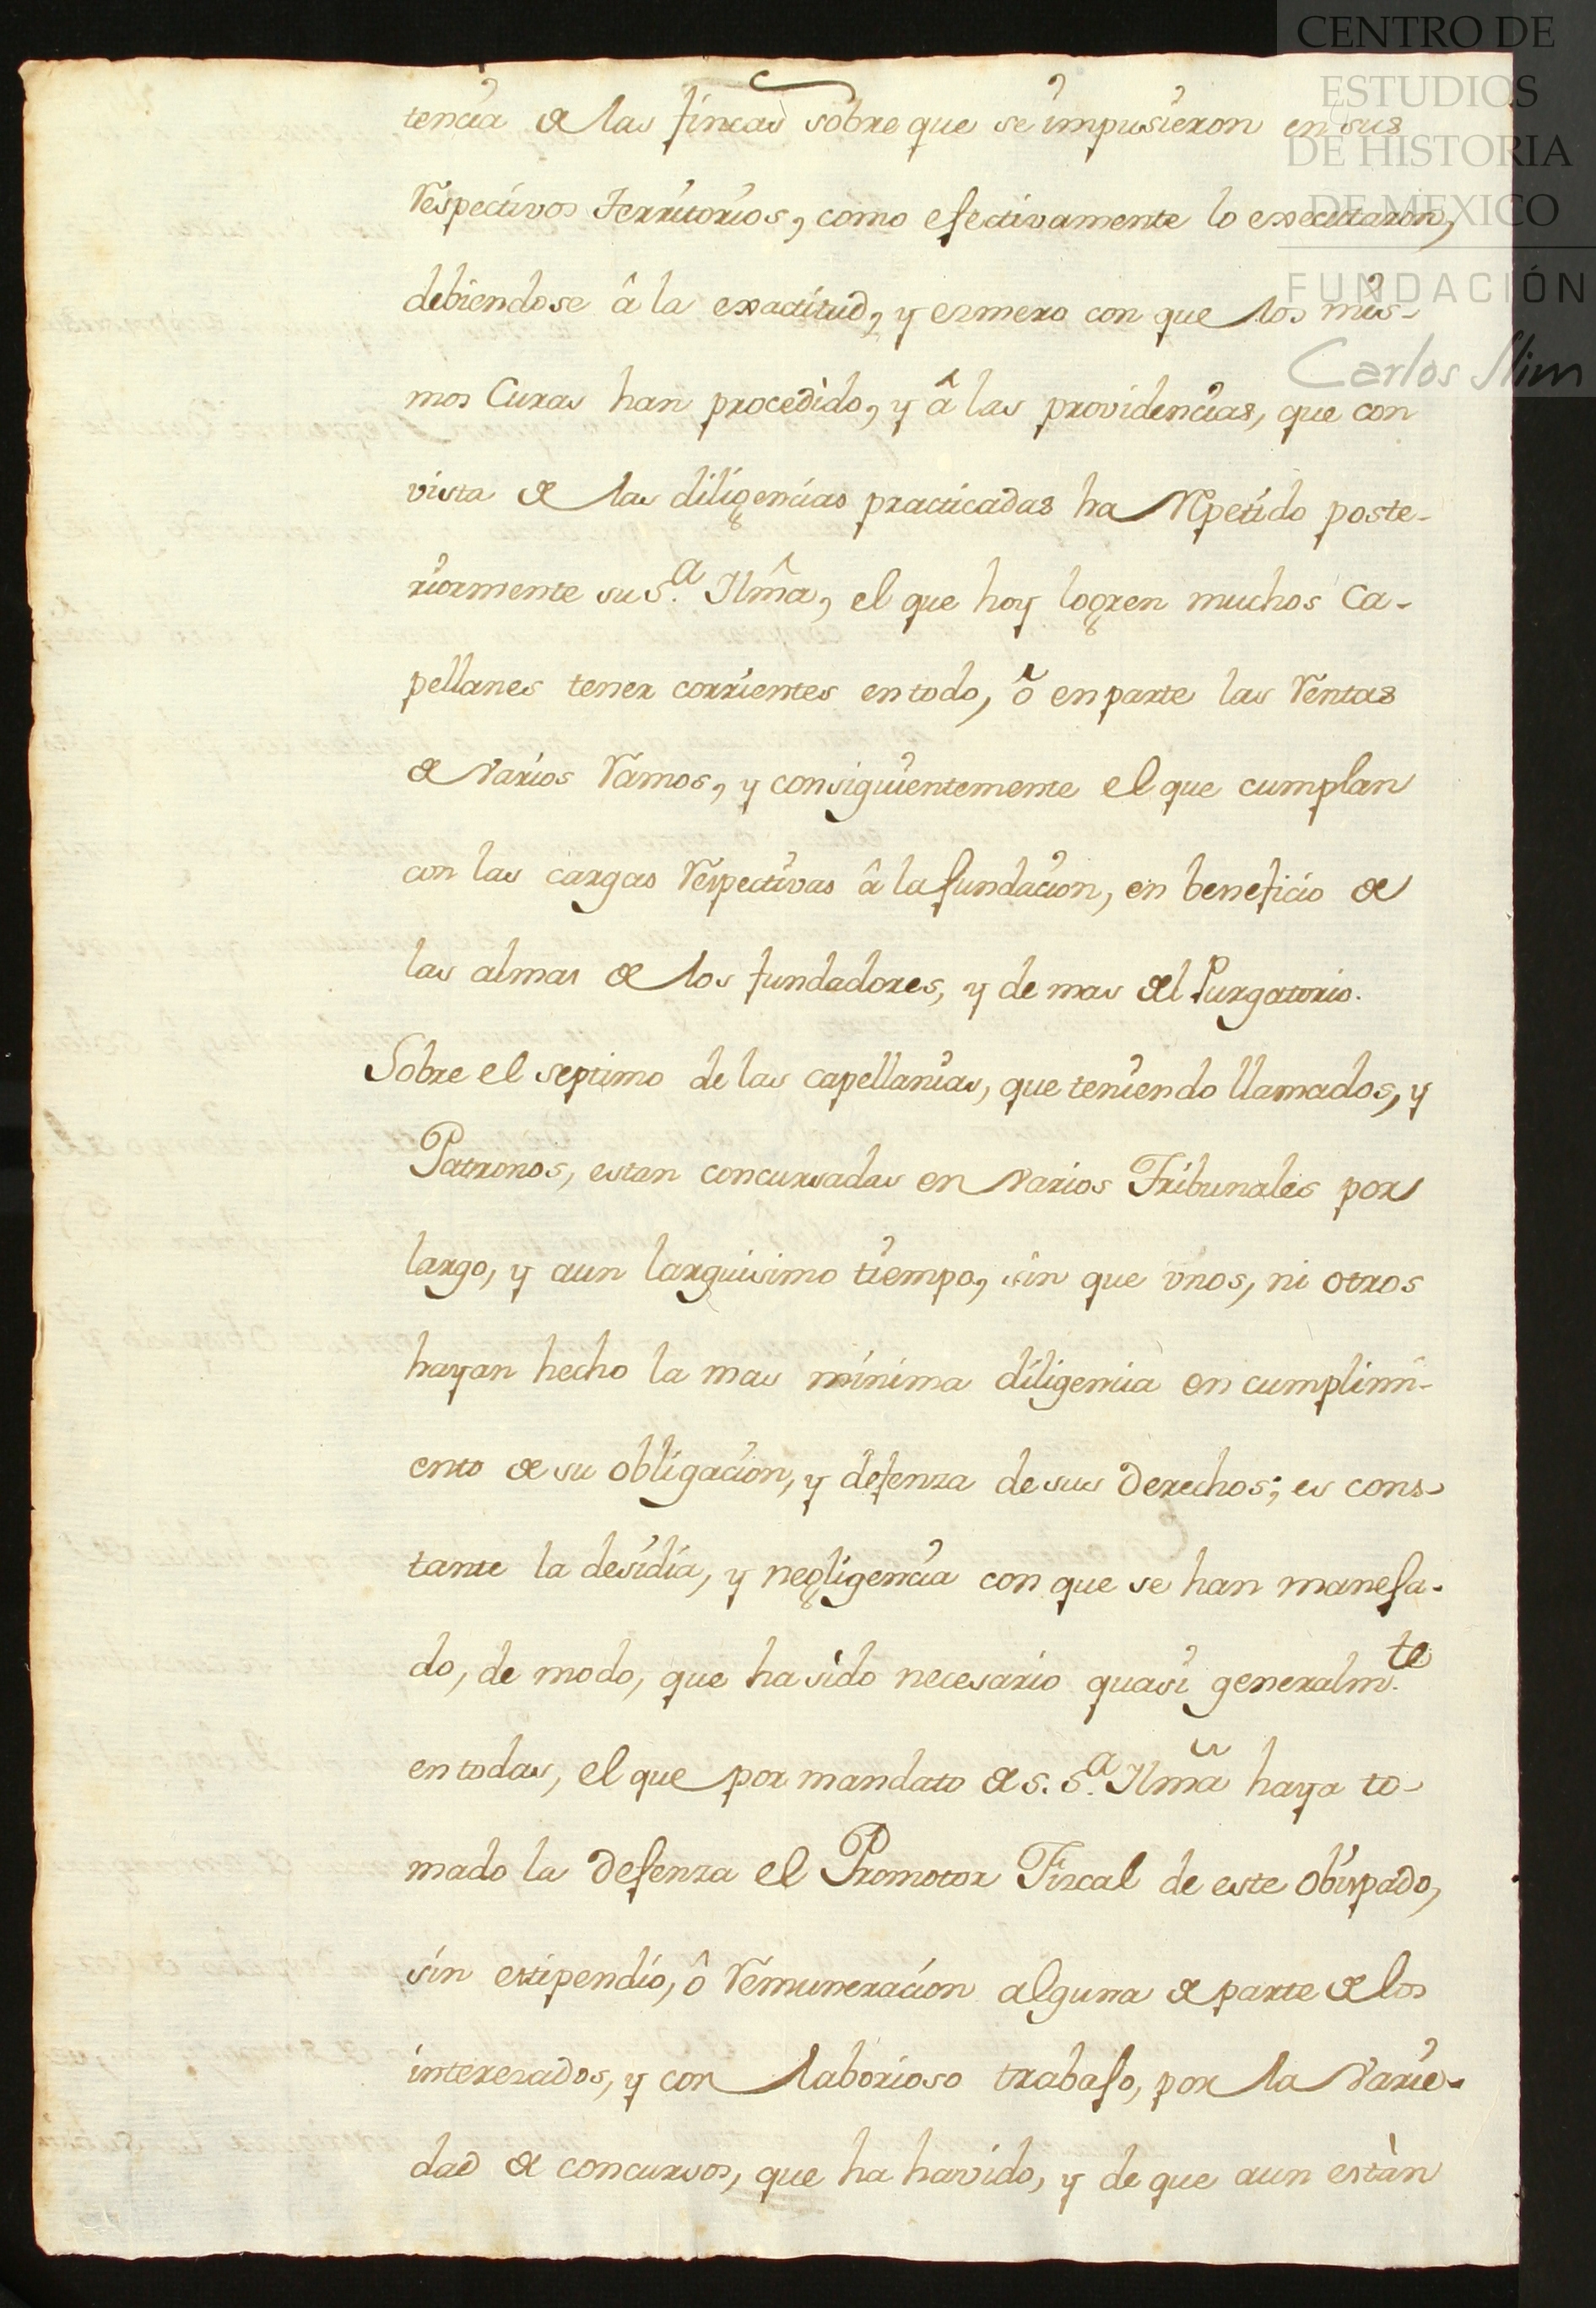 CENTRO DE
ESTUDIOS
DE HISTORIA
DE MEXICO
FUNDACIÓN
Carlos Slim
tencia de las fincas sobre que se impusieron en sus
respectivos Territorios, como efectivamente lo executaron,
debiendose â la exactitud, y esmero con que los mis-
mos Curas han procedido, y â las providencias, que con
vista de las diligencias practicadas ha repetido poste-
riormente su S.ª Ilmã, el que hoy logren muchos Ca-
pellanes tener corrientes en todo, ô en parte las rentas
de varios ramos, y consiguientemente el que cumplan
con las cargas respectivas â la fundacion, en beneficio de
las almas de los fundadores, y de mas del Purgatorio.
Sobre el septimo de las capellanias, que teniendo llamados, y
Patronos, estan concursadas en varios Tribunales por
largo, y aun larguisimo tiempo, sin que vnos, ni otros
hayan hecho la mas minima diligencia en cumplimi-
ento de su obligacion, y defenza de sus Derechos; es cons-
tante la desidia, y negligencia con que se han maneja-
do, de modo, que ha sido necesario quasi generalm.te
en todas, el que por mandato de S. S.ª Ilmã haya to-
mado la Defenza el Promotor Fiscal de este Obispado,
sin estipendio, ô remuneracion alguna de parte de los
interezados, y con laborioso trabajo, por la varie-
dad de concursos, que ha havido, y de que aun estàn